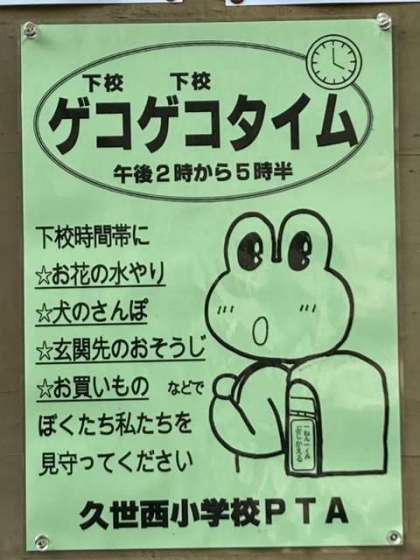 下校 下校
ゲコゲコタイム
午後2時から5時半
下校時間帯に
☆お花の水やり
☆犬のさんぽ
☆玄関先のおそうじ
☆お買いもの などで
ぼくたち私たちを
見守ってください
久世西小学校PTA